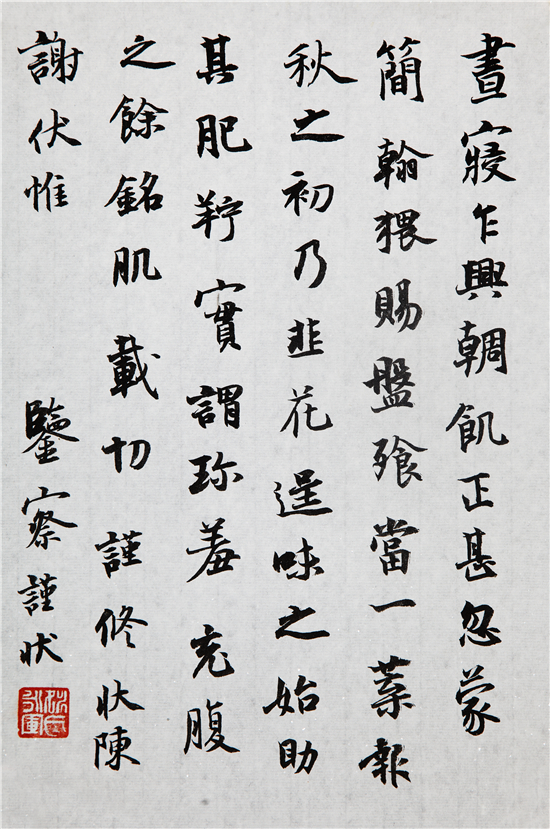 晝寢乍興輖飢正甚忽蒙
簡翰猥賜盤飧當一葉報
秋之初乃韭花逞味之始助
其肥羜實謂珍羞充腹
之餘銘肌載切謹修狀陳
謝伏惟 鑒察謹狀